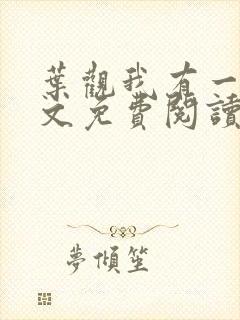 葉觀我有一
文免費閱讀
夢傾笙